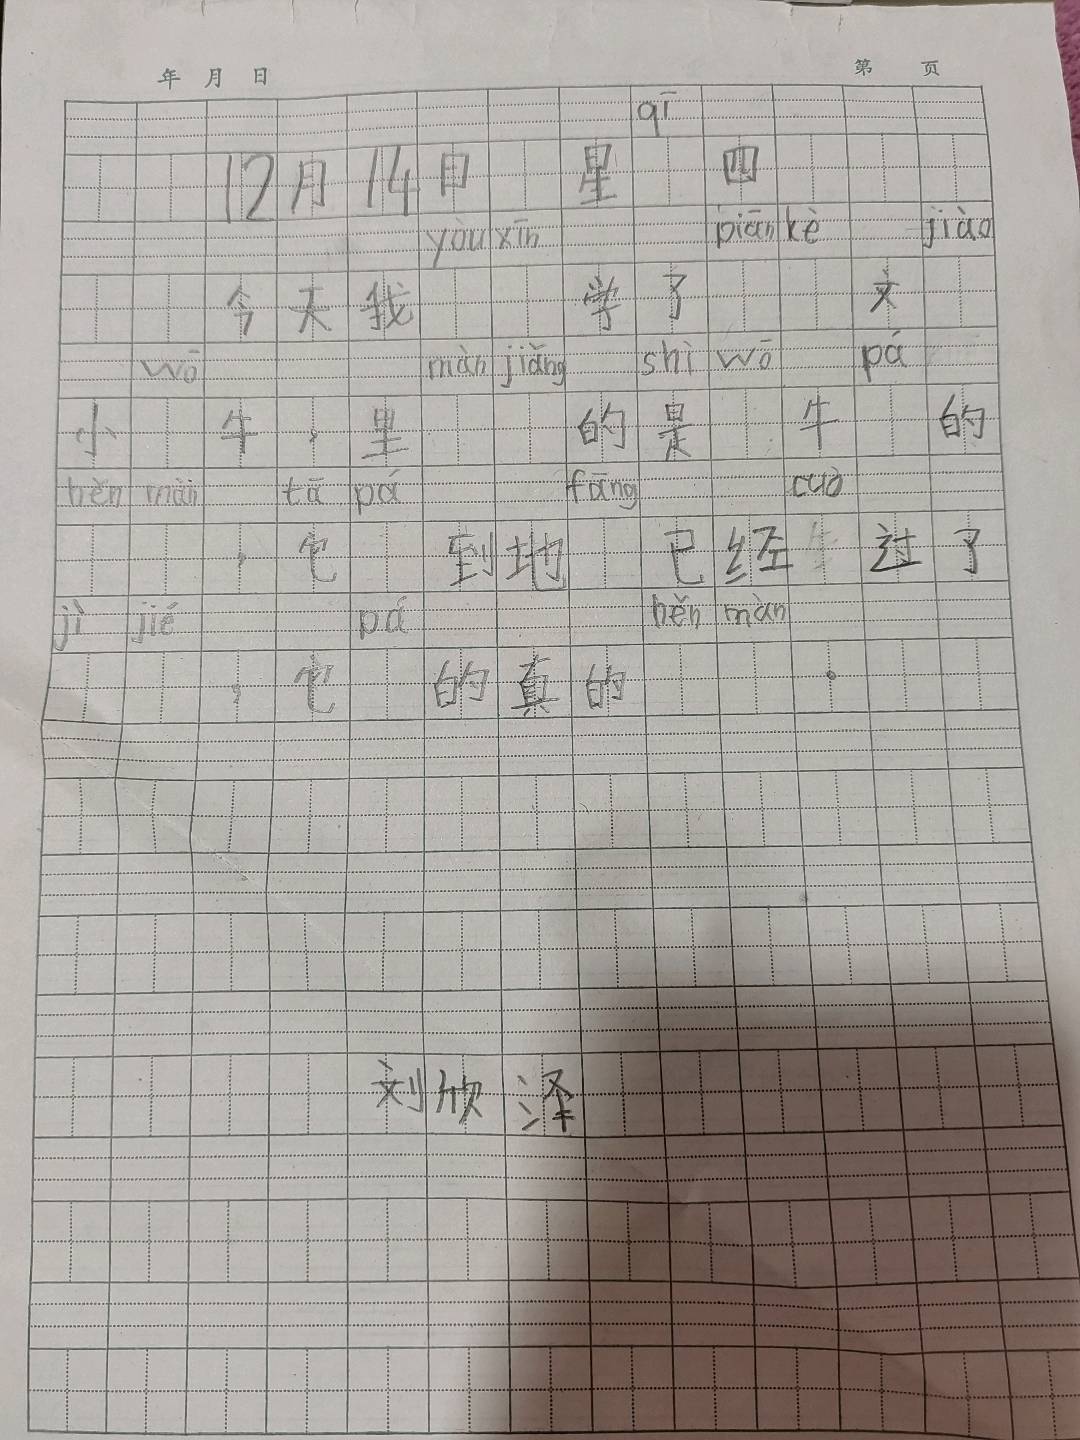 年 月 日 第 页
qī
12月14日 星 四
yòu xīn piān kè jiào
今天我 学了 文
wō màn jiǎng shì wō pá
小 牛，里 的是 牛 的
hěn màn tā pá fāng cuò
，它 到地 已经 过了
jì jié pá hěn màn
，它 的真的 。
刘欣泽